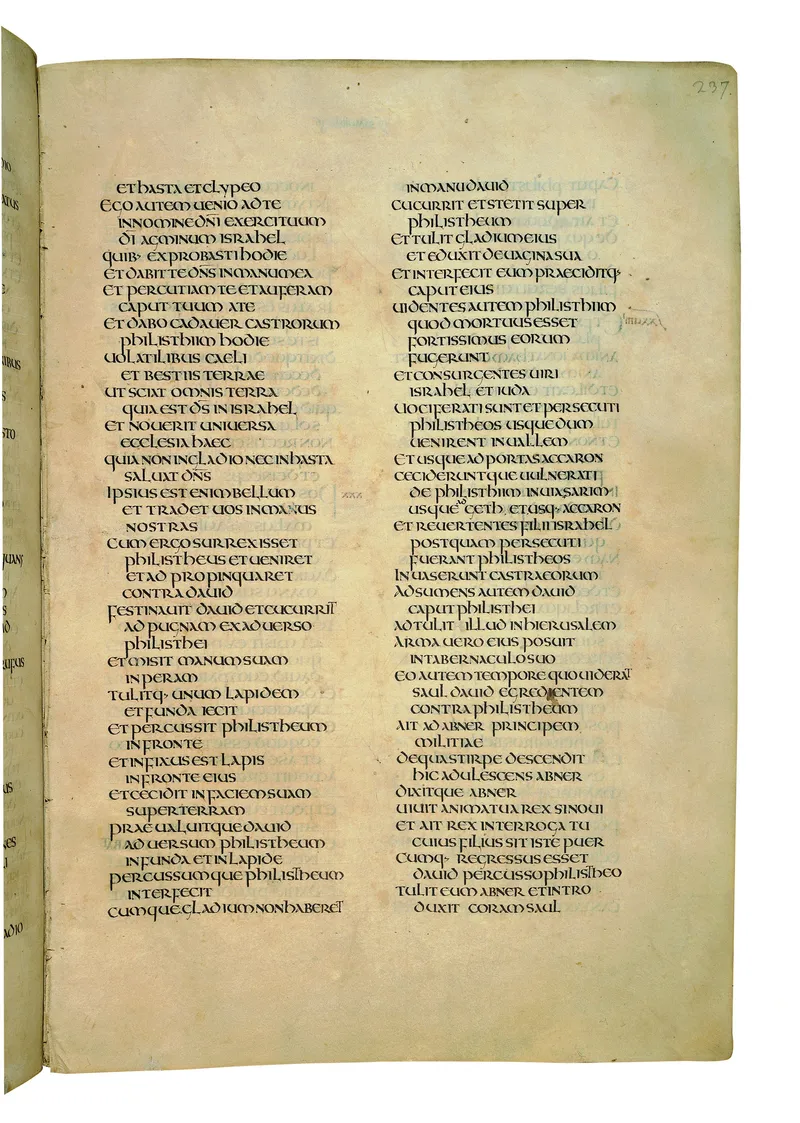 237.
ET HASTA ET CLYPEO
EGO AUTEM UENIO AD TE
IN NOMINE DNI EXERCITUUM
DI AGMINUM ISRAHEL
QUIB· EXPROBASTI HODIE
ET DABIT TE DNS IN MANU MEA
ET PERCUTIAM TE ET AUFERAM
CAPUT TUUM A TE
ET DABO CADAUER CASTRORUM
PHILISTHIIM HODIE
UOLATILIBUS CAELI
ET BESTIIS TERRAE
UT SCIAT OMNIS TERRA
QUIA EST DS IN ISRAHEL
ET NOUERIT UNIUERSA
ECCLESIA HAEC
QUIA NON IN GLADIO NEC IN HASTA
SALUAT DNS
IPSIUS EST ENIM BELLUM
ET TRADET UOS IN MANUS
NOSTRAS
CUM ERGO SURREXISSET
PHILISTHEUS ET UENIRET
ET ADPROPINQUARET
CONTRA DAUID
FESTINAUIT DAUID ET CUCURRIT
AD PUGNAM EX ADUERSO
PHILISTHEI
ET MISIT MANUM SUAM
IN PERAM
TULITQ· UNUM LAPIDEM
ET FUNDA IECIT
ET PERCUSSIT PHILISTHEUM
IN FRONTE
ET INFIXUS EST LAPIS
IN FRONTE EIUS
ET CECIDIT IN FACIEM SUAM
SUPER TERRAM
PRAEUALUITQUE DAUID
ADUERSUM PHILISTHEUM
IN FUNDA ET IN LAPIDE
PERCUSSUMQUE PHILISTHEUM
INTERFECIT
CUMQUE GLADIUM NON HABERET
IN MANU DAUID
CUCURRIT ET STETIT SUPER
PHILISTHEUM
ET TULIT GLADIUM EIUS
ET EDUXIT DE UAGINA SUA
ET INTERFECIT EUM PRAECIDITQ·
CAPUT EIUS
UIDENTES AUTEM PHILISTHIIM
QUOD MORTUUS ESSET
FORTISSIMUS EORUM
FUGERUNT
ET CONSURGENTES UIRI
ISRAHEL ET IUDA
UOCIFERATI SUNT ET PERSECUTI
PHILISTHEOS USQUE DUM
UENIRENT IN UALLEM
ET USQUE AD PORTAS ACCARON
CECIDERUNTQUE UULNERATI
DE PHILISTHIIM IN UIA SARIM
USQUE AD GETH ET USQ· ACCARON
ET REUERTENTES FILII ISRAHEL
POSTQUAM PERSECUTI
FUERANT PHILISTHEOS
INUASERUNT CASTRA EORUM
ADSUMENS AUTEM DAUID
CAPUT PHILISTHEI
ADTULIT ILLUD IN HIERUSALEM
ARMA UERO EIUS POSUIT
IN TABERNACULO SUO
EO AUTEM TEMPORE QUO UIDERAT
SAUL DAUID EGREDIENTEM
CONTRA PHILISTHEUM
AIT AD ABNER PRINCIPEM
MILITIAE
DE QUA STIRPE DESCENDIT
HIC ADULESCENS ABNER
DIXITQUE ABNER
UIUIT ANIMA TUA REX SI NOUI
ET AIT REX INTERROGA TU
CUIUS FILIUS SIT ISTE PUER
CUMQ· REGRESSUS ESSET
DAUID PERCUSSO PHILISTHEO
TULIT EUM ABNER ET INTRO
DUXIT CORAM SAUL